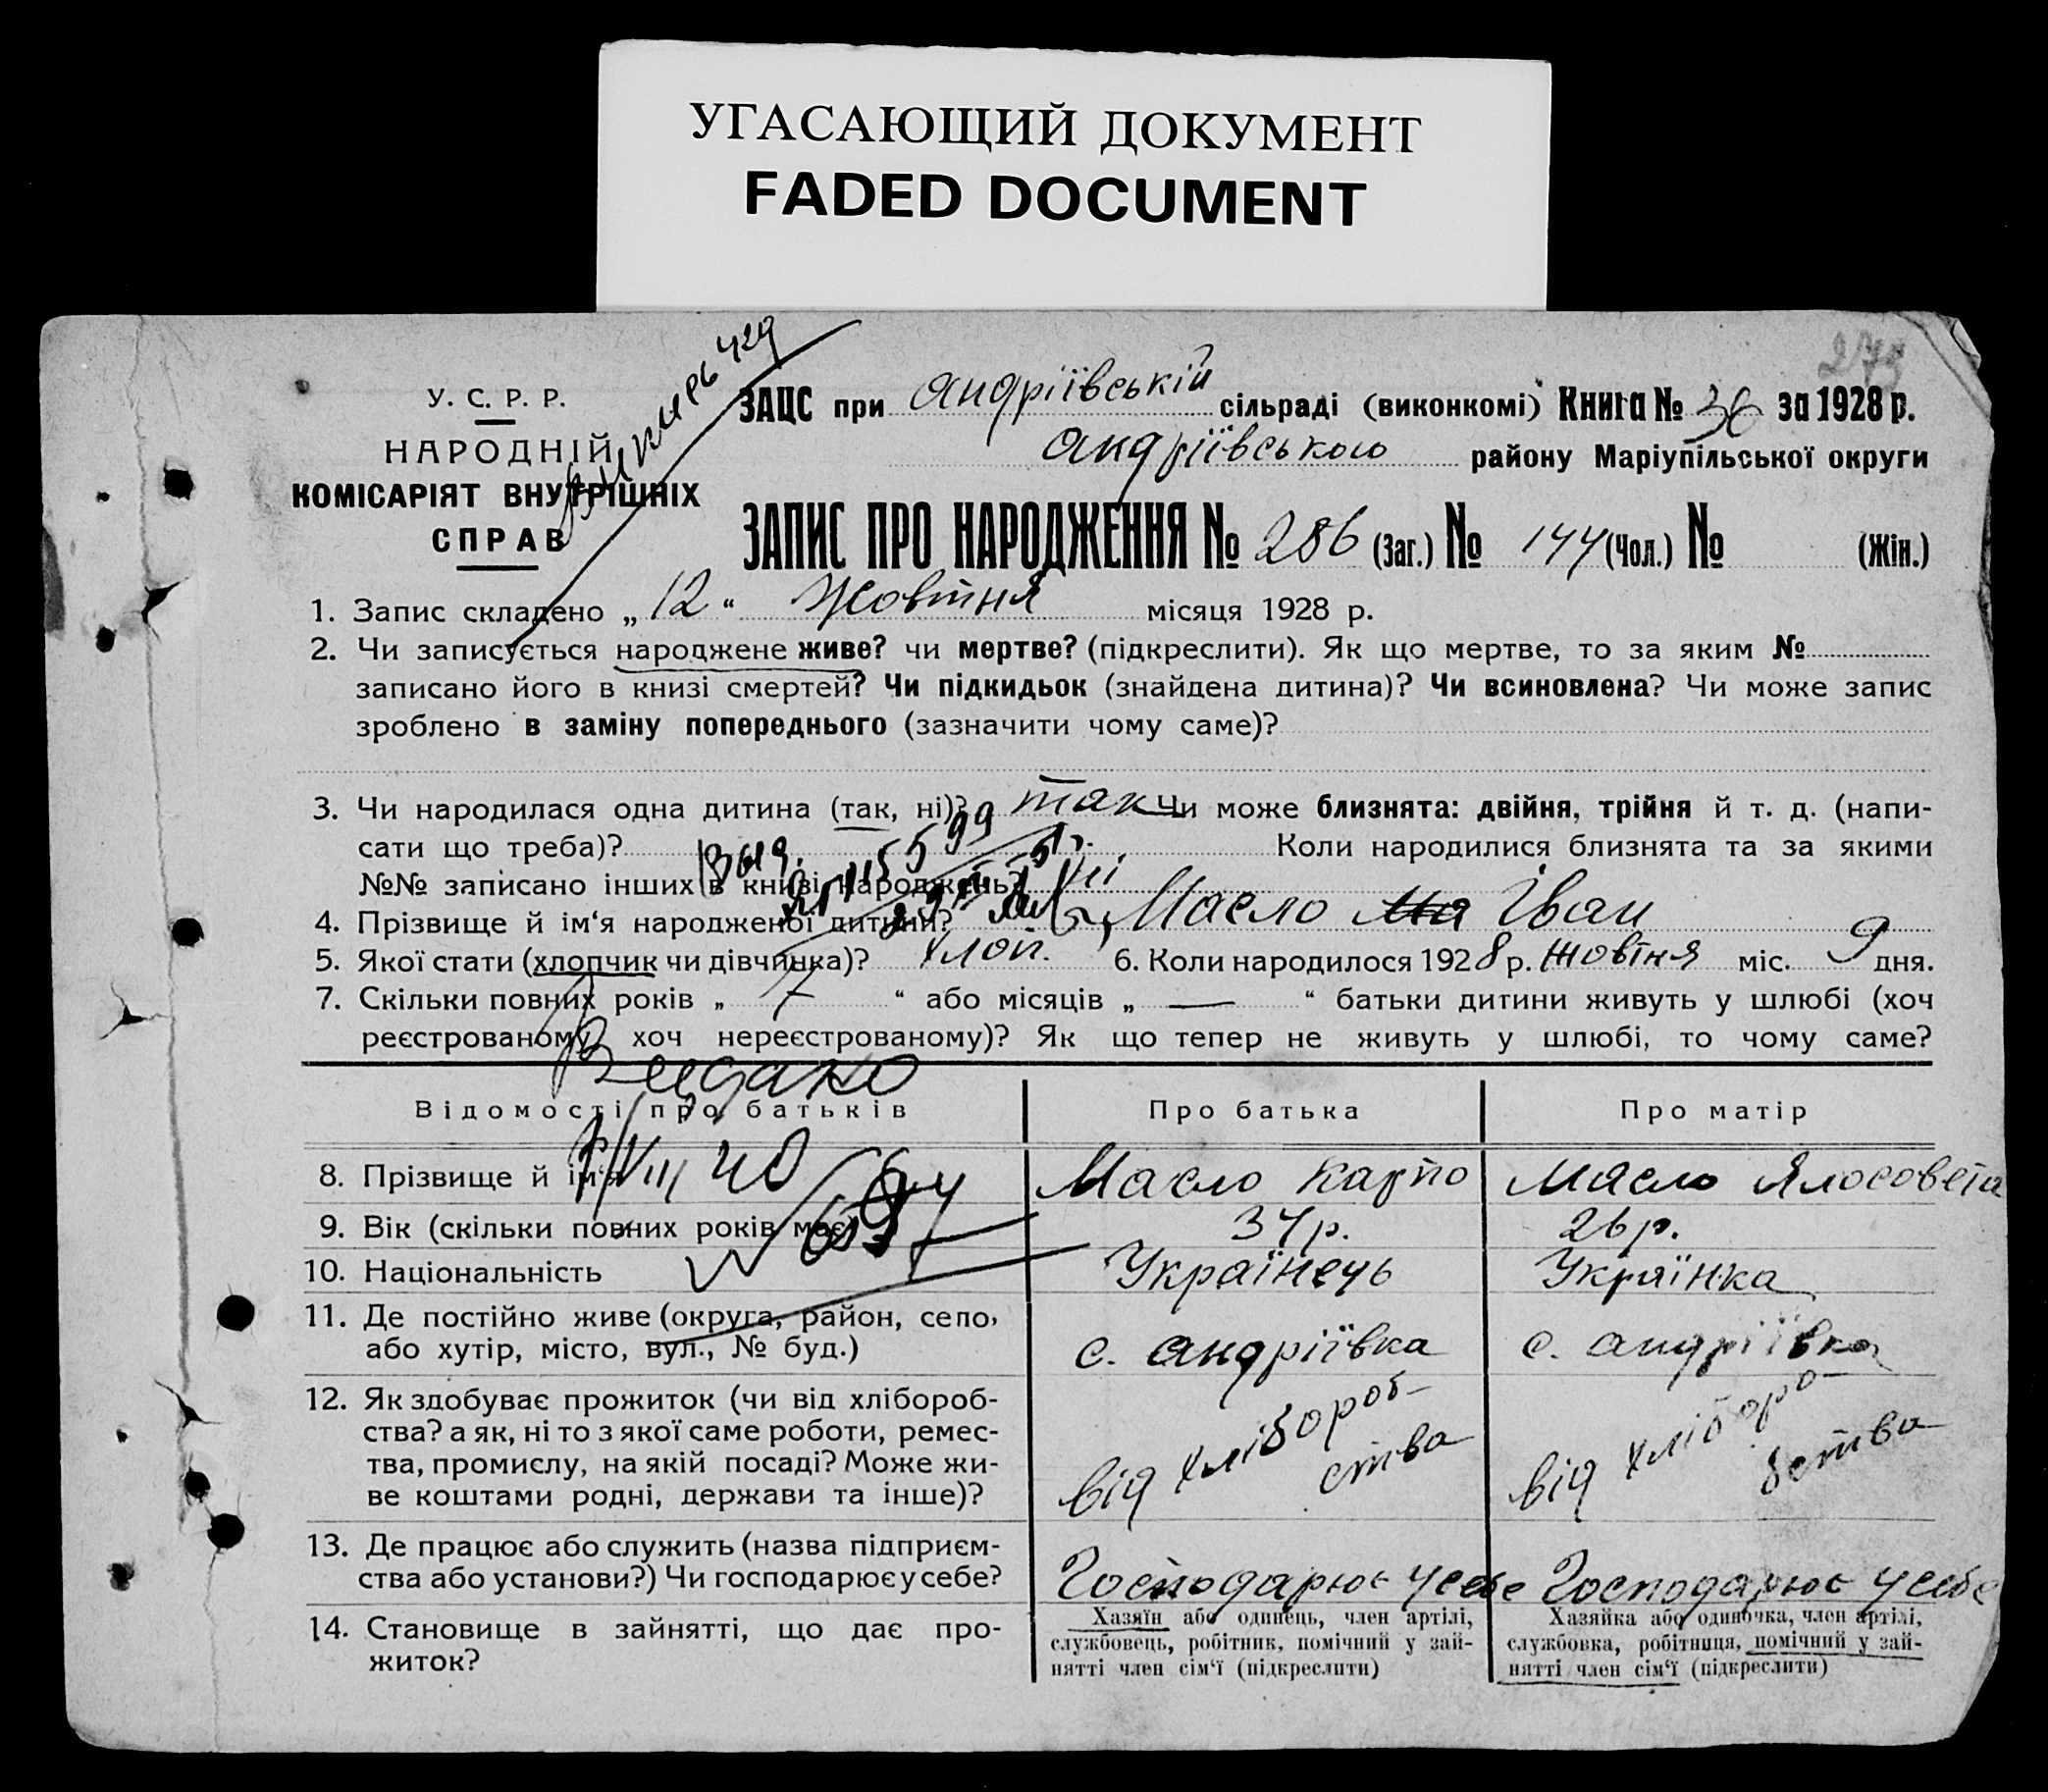 УГАСАЮЩИЙ ДОКУМЕНТ
FADED DOCUMENT
273
У. С. Р. Р.
НАРОДНІЙ
КОМІСАРІЯТ ВНУТРІШНІХ
СПРАВ
429
ЗАЦС при Андріївській сільраді (виконкомі) Книга № 36 за 1928 р.
Андріївського району Маріупільської округи
ЗАПИС ПРО НАРОДЖЕННЯ № 286 (Заг.) № 144 (Чол.) № (Жін.)
1. Запис складено „ 12 “ Жовтня місяця 1928 р.
2. Чи записується народжене живе? чи мертве? (підкреслити). Як що мертве, то за яким №
записано його в книзі смертей? Чи підкидьок (знайдена дитина)? Чи всиновлена? Чи може запис
зроблено в заміну попереднього (зазначити чому саме)?
3. Чи народилася одна дитина (так, ні)? так Чи може близнята: двійня, трійня й т. д. (напи-
сати що треба)? Коли народилися близнята та за якими
№№ записано інших в книзі народжень?
4. Прізвище й ім‘я народженої дитини? Масло Ма Іван
5. Якої стати (хлопчик чи дівчинка)? хлоп. 6. Коли народилося 1928 р. Жовтня міс. 9 дня.
7. Скільки повних років „ 7 “ або місяців „ — “ батьки дитини живуть у шлюбі (хоч
реєстрованому, хоч нереєстрованому)? Як що тепер не живуть у шлюбі, то чому саме?
Видано
Відомості про батьків Про батька Про матір
VIII 40
8. Прізвище й ім‘я Масло Карпо Масло Ялосовета
9. Вік (скільки повних років має) 34 р. 26 р.
10. Національність Українець Українка
11. Де постійно живе (округа, район, село,
або хутір, місто, вул., № буд.) с. Андріївка с. Андріївка
12. Як здобуває прожиток (чи від хлібороб-
ства? а як, ні то з якої саме роботи, ремес-
тва, промислу, на якій посаді? Може жи-
ве коштами родні, держави та інше)?
від хлібороб-
ства
від хліборо-
бства
13. Де працює або служить (назва підприєм-
ства або установи?) Чи господарює у себе? Господарює у себе Господарює у себе
14. Становище в зайнятті, що дає про-
житок?
Хазяїн або одинець, член артілі,
службовець, робітник, помічний у зай-
нятті член сім‘ї (підкреслити)
Хазяйка або одиночка, член артілі,
службовка, робітниця, помічний у зай-
нятті член сім‘ї (підкреслити)